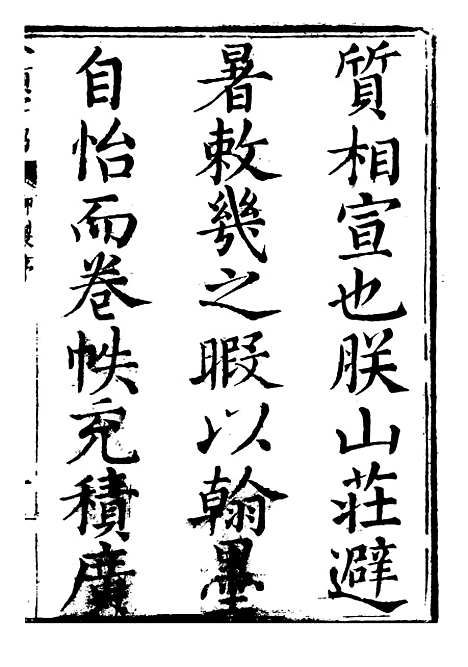 質相宣也朕山莊避
暑敕幾之暇以翰墨
自怡而卷帙充積廣
御製序